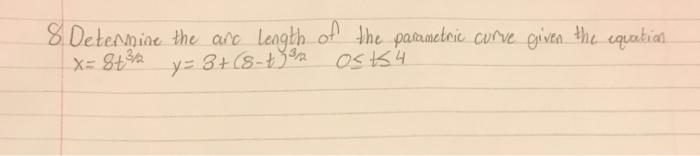 8. Determine the arc length of the parametric curve given the equation
x = 8t^3/2 y = 3+(8-t)^3/2 0≤t≤4